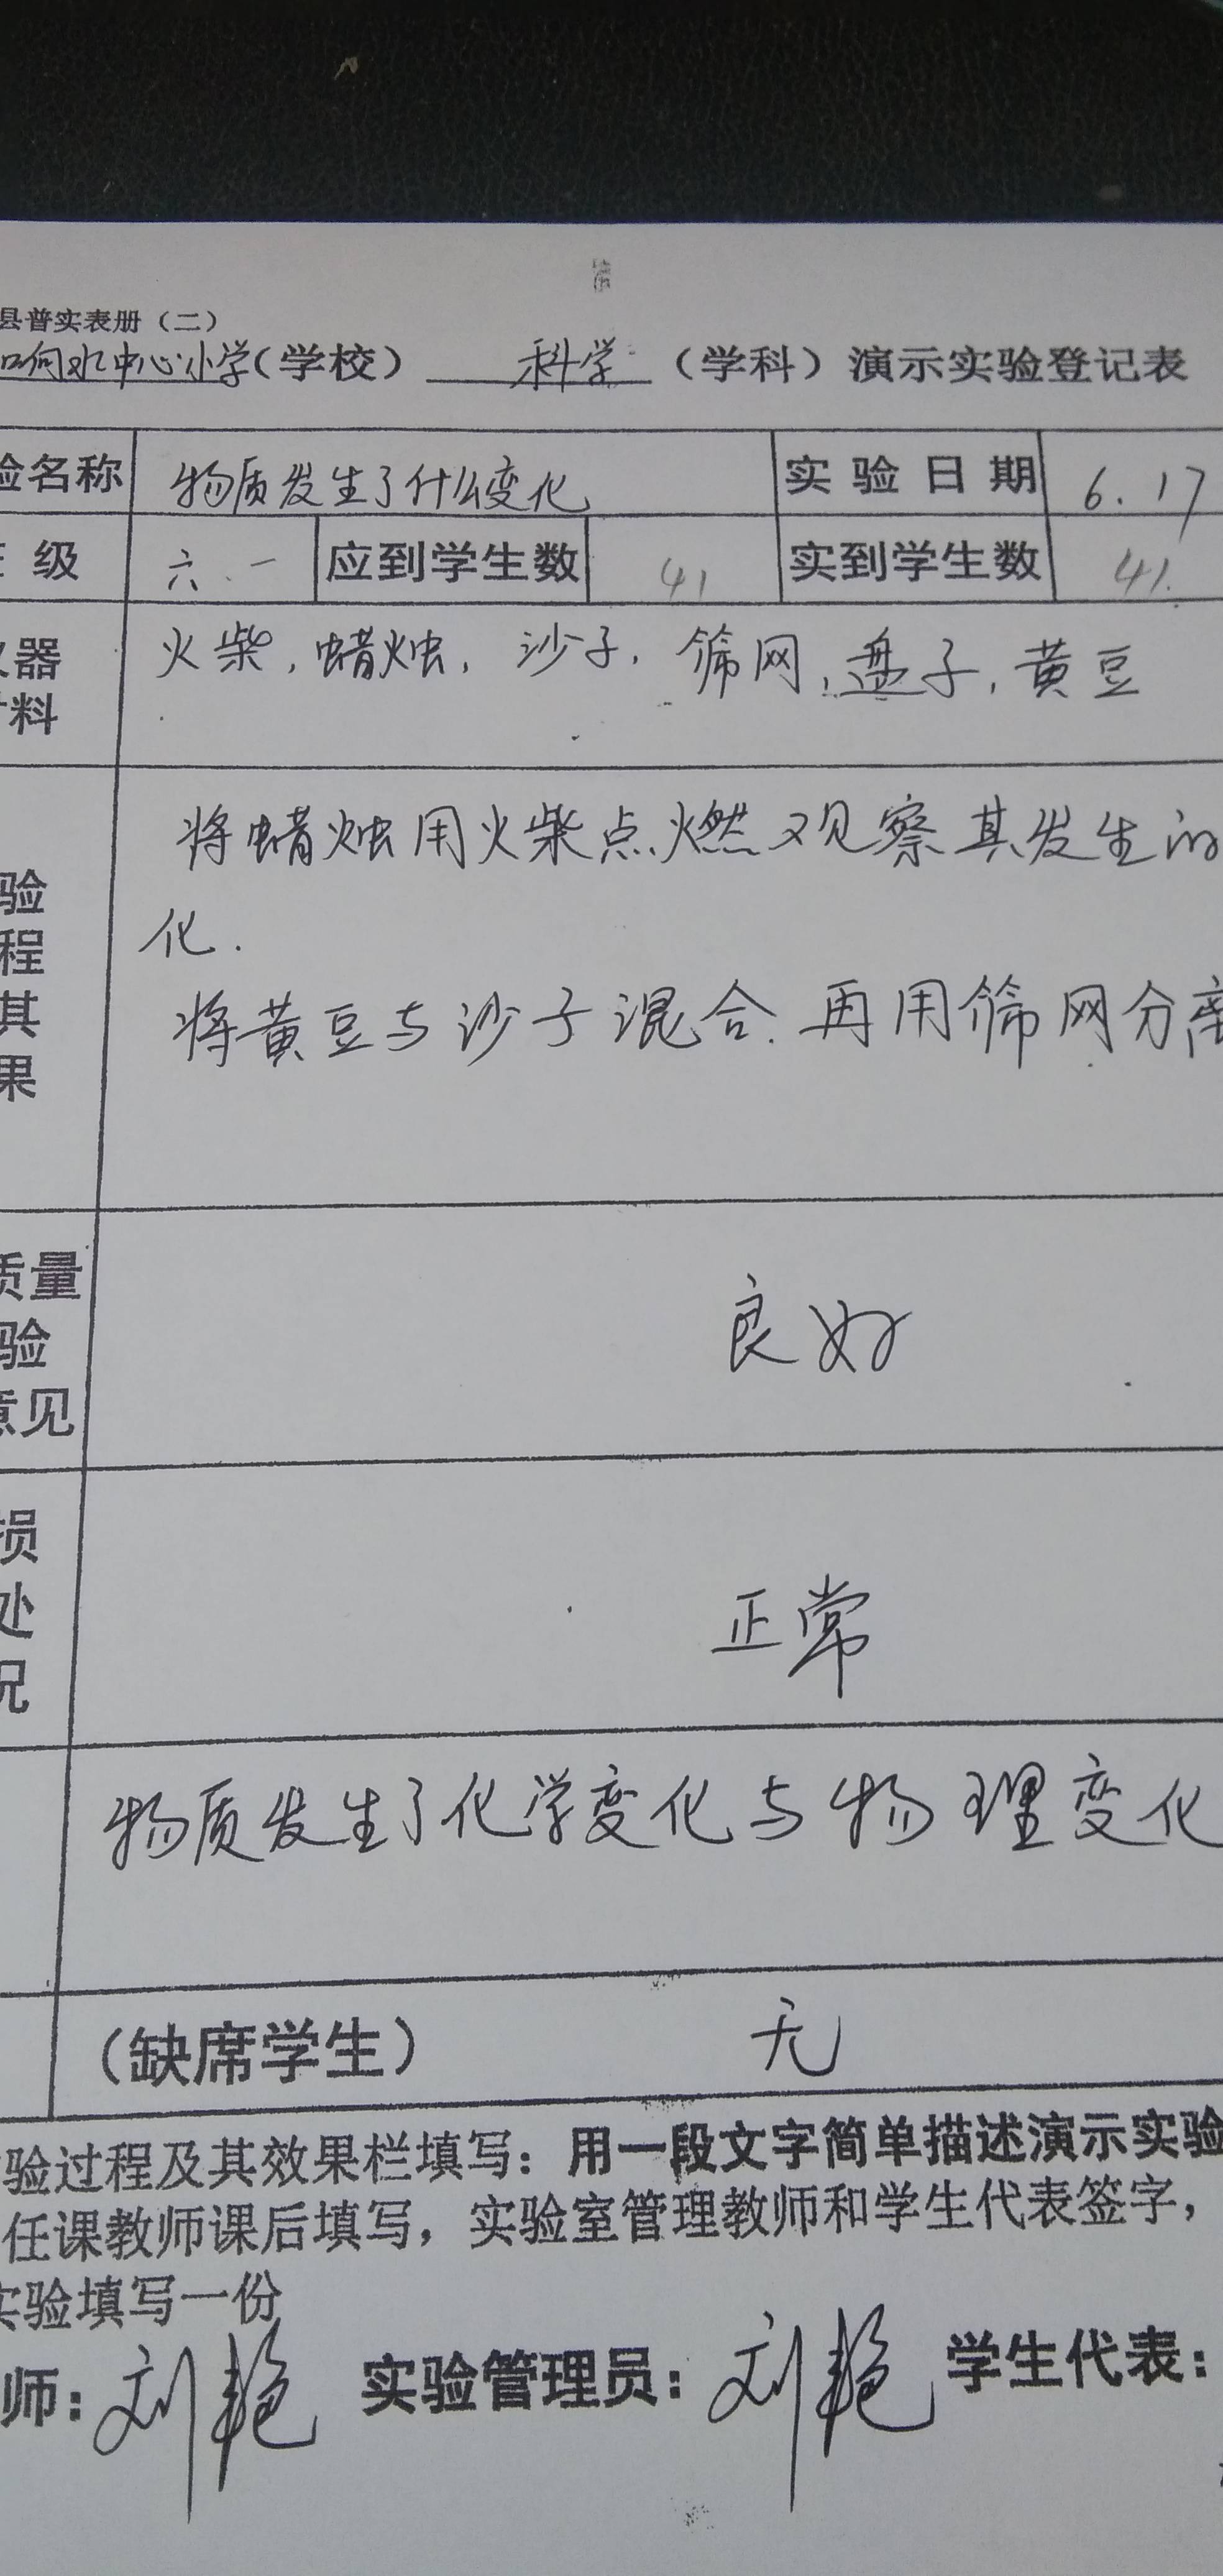 县普实表册（二）
响水中心小学（学校） 科学 （学科）演示实验登记表
验名称 物质发生了什么变化 实验日期 6.17
级 六.一 应到学生数 41 实到学生数 41.
器 火柴，蜡烛，沙子，筛网，盘子，黄豆
料
将蜡烛用火柴点燃观察其发生的
验
化.
程
将黄豆与沙子混合.再用筛网分离
其
果
质量
良好
验
意见
损
处
正常
况
物质发生了化学变化与物理变化
（缺席学生） 无
验过程及其效果栏填写：用一段文字简单描述演示实验
任课教师课后填写，实验室管理教师和学生代表签字，
实验填写一份
师：刘艳 实验管理员：刘艳 学生代表：